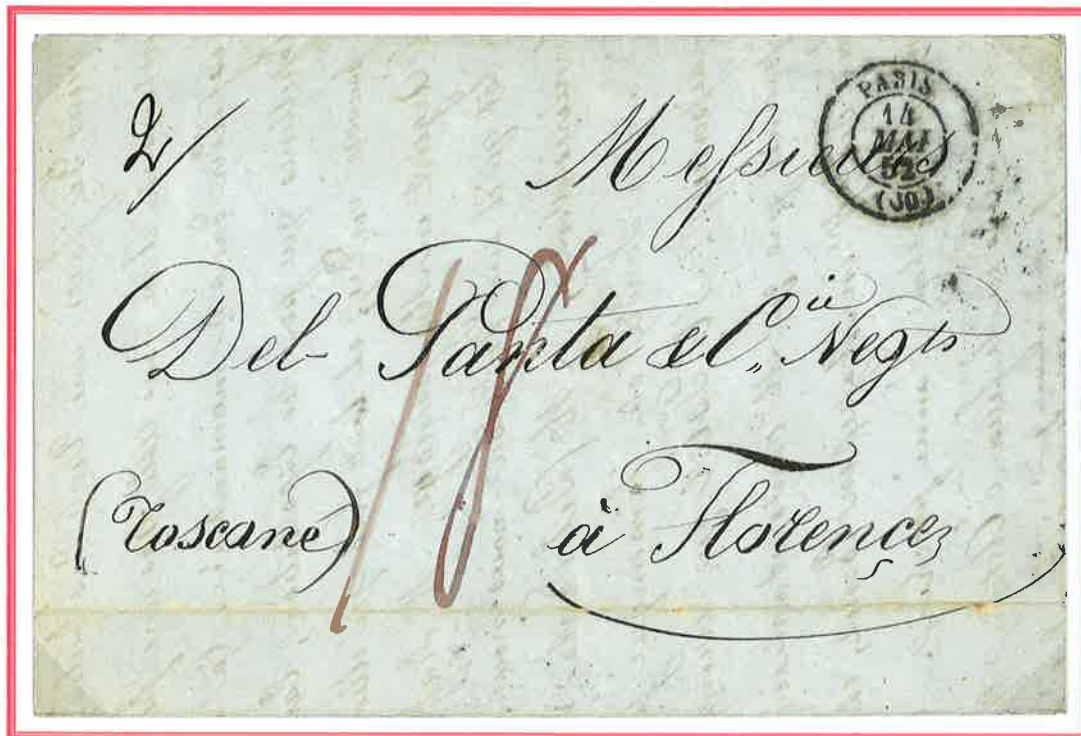 PARIS
14
MAI
52
(60)
2/
Messieurs
Del Santa & C.ie Negts
18
(Toscane)
à Florence